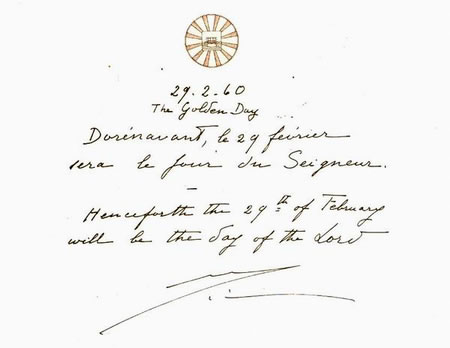 29.2.60
The Golden Day
Dorénavant, le 29 février
sera le Jour du Seigneur.
—
Henceforth the 29th of February
will be the day of the Lord